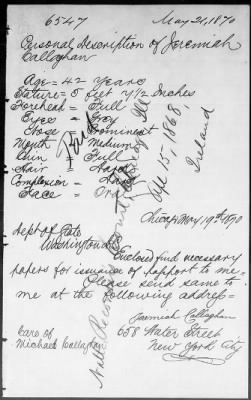 6547
May 21, 1870
Personal Description of Jeremiah
Callaghan
Age = 42 Years
Stature = 5 feet 7 1/2 Inches
Forehead = Full
Eyes = Grey
Nose Prominent
Mouth = Medium
Chin = Full
Hair =
Complexion =
Face =
Apl 15, 1868,
Ireland
Chicago May 19th 1870
Dept of State
Washington
Enclosed find necessary
papers for issuance of passport to me
Please send same to
me at the following address-
Jeremiah Callaghan
658 Water Street
New York City
Care of
Michael Callaghan